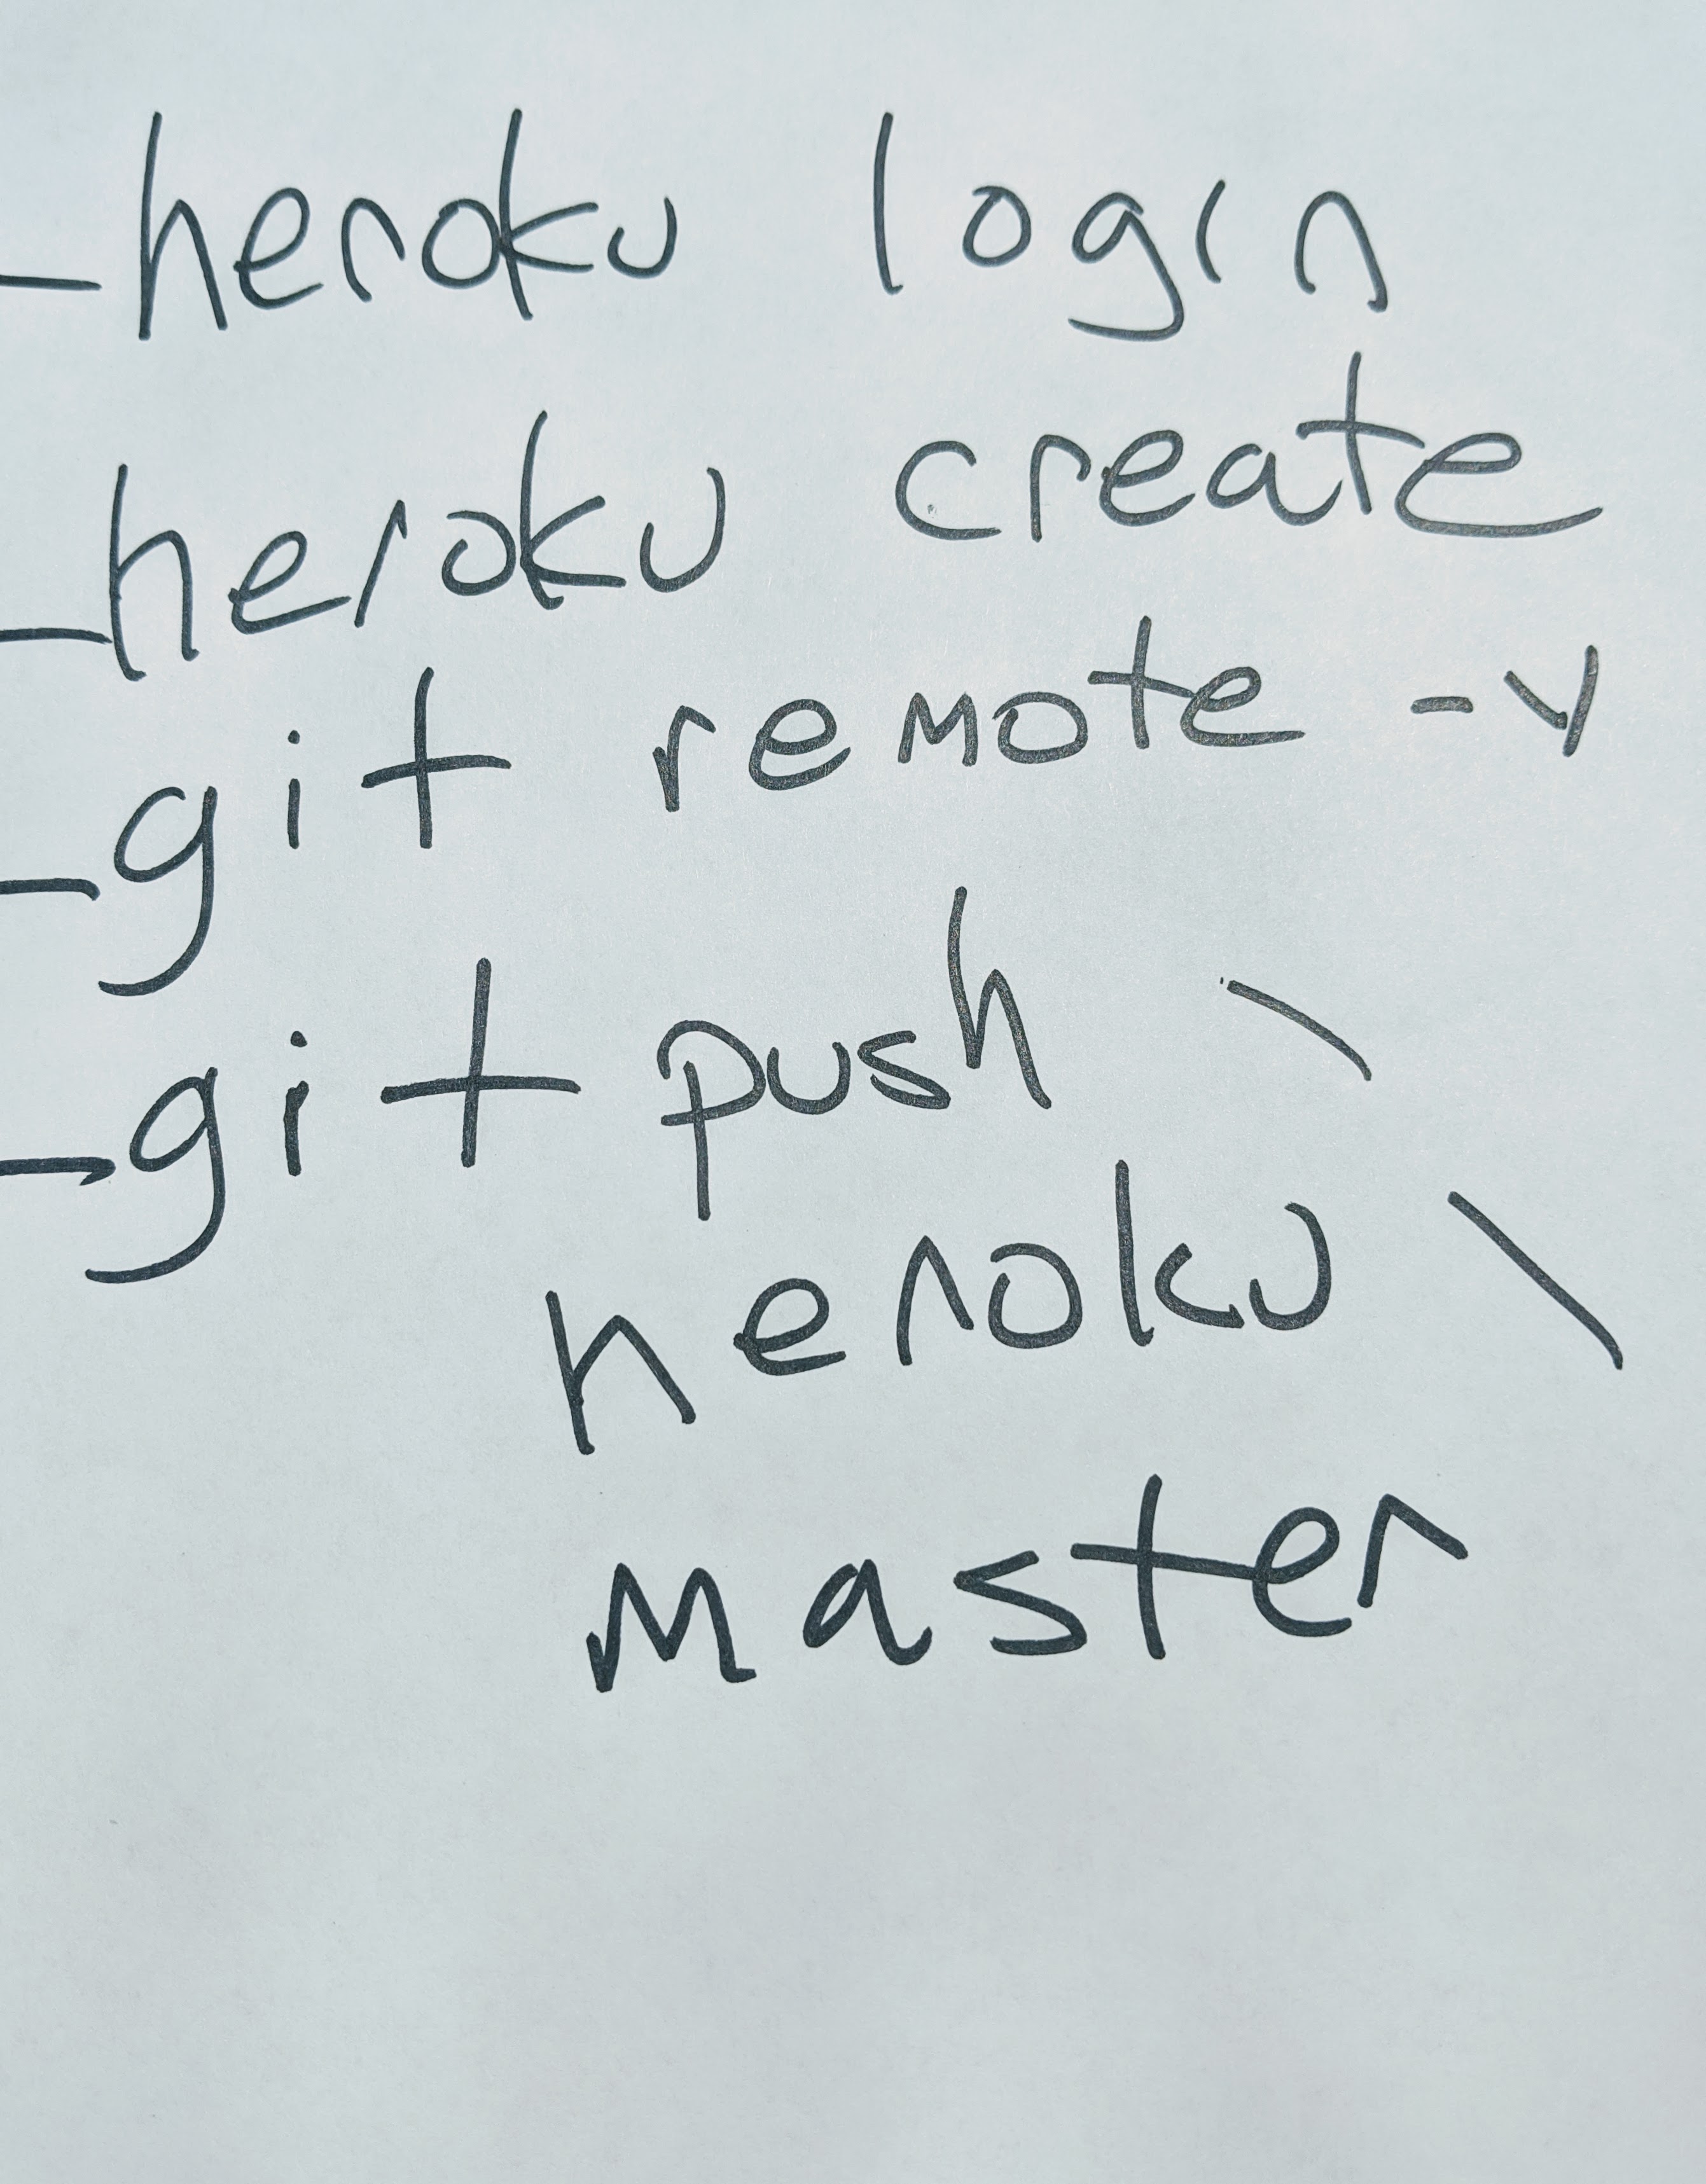 -heroku login
-heroku create
-git remote -v
-git push \
heroku \
master